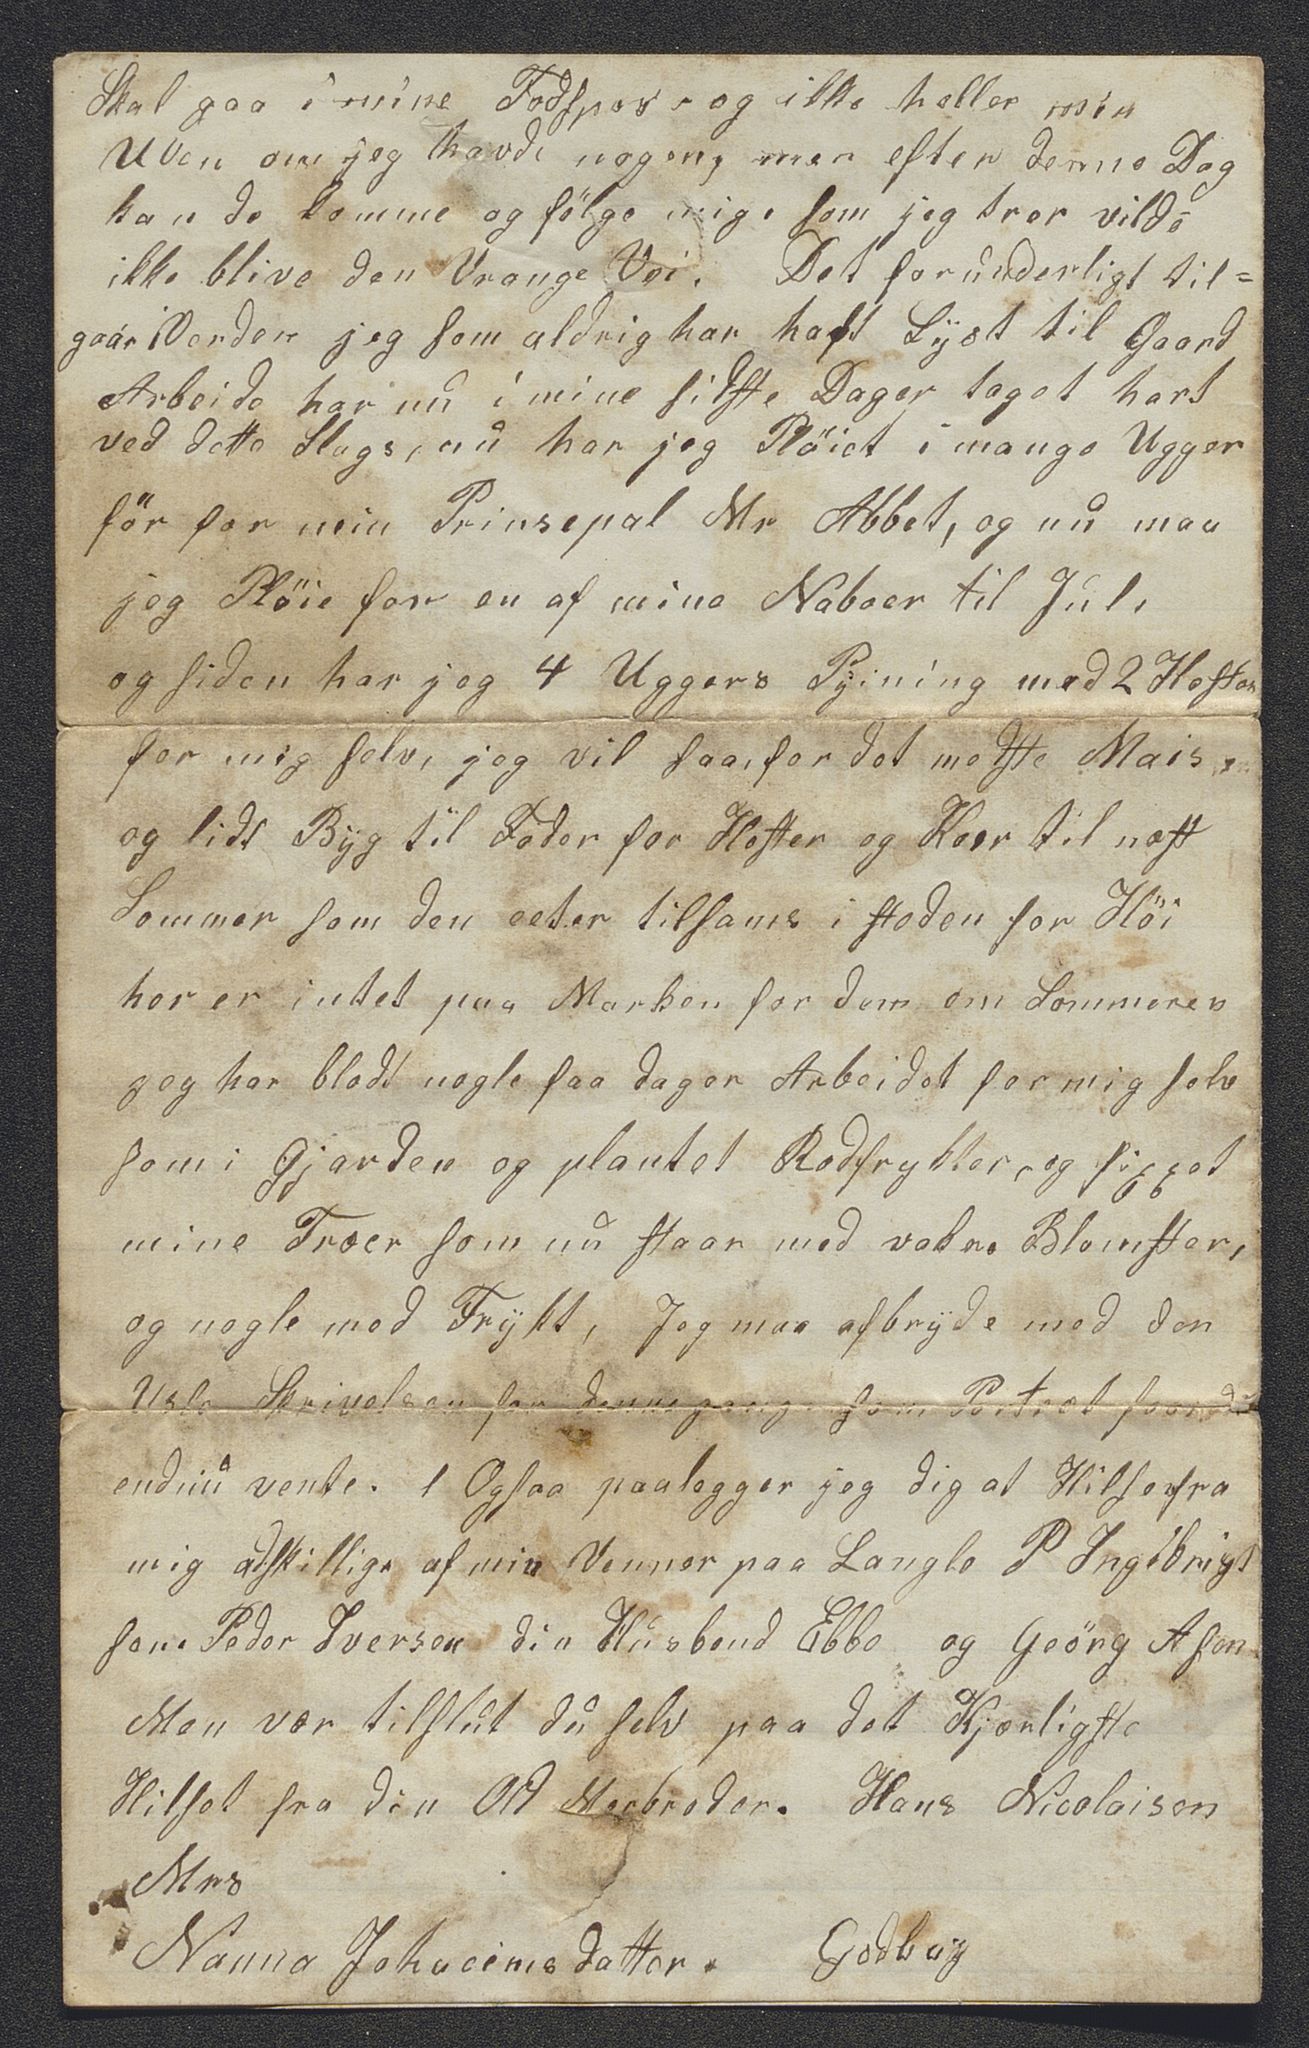 Skal gaa i mine Fodspor. og ikke heller min
Uven om jeg havde nogen, men efter denne Dag
kan de komme og fölge mig. som jeg tror vilde
ikke blive den Vrange Vei. Det forunderligt til=
gaar i Verden jeg som aldrig har haft Lÿst til Gaard
Arbeide har nu i mine sidste Dager taget hart
ved dette Slags, nu har jeg Plöiet i mange Ugger
för for min Prinsepal Mr Abbet, og nu maa
jeg Plöie for en af mine Naboer til Jul,
og siden har jeg 4 Uggers Pÿining med 2 Hester
for mig selv, jeg vil saa, for det meste Mais,
og lidt Bÿg til Foder for Hester og Koer til næst
Sommer som den eeter tilsams i steden for Höi
her er intet paa Marken for dem om Sommeren
jeg har blodt nogle faa dager Arbeidet for mig selv
som i Gjarden og plantet Rodfrykter, og figget
mine Træer som nu staar med vakre Blomster,
og nogle med Frÿkt, Jeg maa afbrÿde med den
Usle Skrivelsen for denne gang. som Portræt faar du
endnu vente. Ogsaa paalegger jeg dig at Hilse fra
mig adskillige af min Venner paa Langlo P Ingebrigt
sen. Peder Iversen din Husbond Ebbe og Geörg Asen
Men vær tilslut du selv paa det Kjærligste
Hilset fra din Old Morbroder. Hans Nicolaisen
Mrs
Nanna Johacimsdatter. Godbuÿ